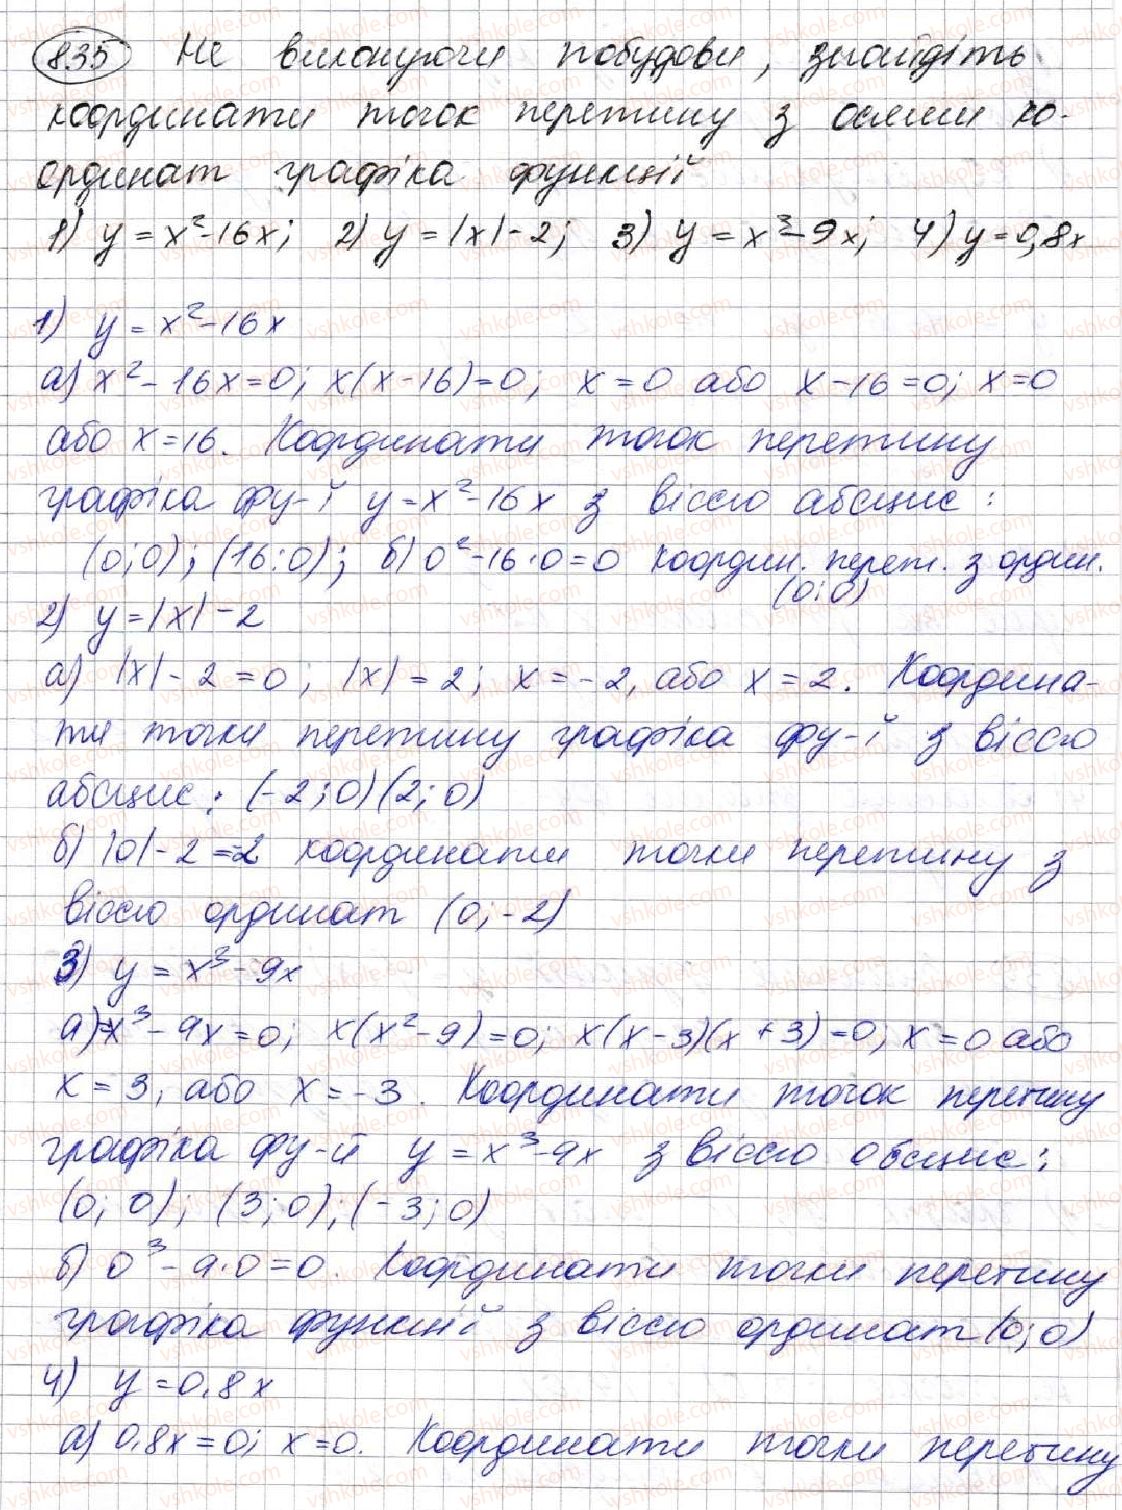 835 Не виконуючи побудови, знайдіть
координати точок перетину з осями ко-
ординат графіка функцій
1) y = x²-16x; 2) y = |x|-2; 3) y = x³-9x; 4) y=0,8x
1) y = x²-16x
а) x²-16x=0; x(x-16)=0, x=0 або x-16=0; x=0
або x=16. Координати точок перетину
графіка фу-ї y=x²-16x з віссю абсцис:
(0;0); (16;0); б) 0²-16·0=0 координ. перет. з ордин.
(0;0)
2) y=|x|-2
а) |x|-2=0; |x|=2; x=-2, або x=2. Координа-
ти точки перетину графіка фу-ї з віссю
абсцис: (-2;0)(2;0)
б) |0|-2=-2 координати точки перетину з
віссю ординат (0;-2)
3) y = x³-9x
а) x³-9x=0; x(x²-9)=0; x(x-3)(x+3)=0, x=0 або
x=3, або x=-3. Координати точок перетину
графіка фу-й y=x³-9x з віссю обсцис:
(0;0); (3;0); (-3;0)
б) 0³-9·0=0. Координати точки перетину
графіка функцій з віссю ординат (0;0)
4) y=0,8x
а) 0,8x=0; x=0. Координати точки перетину